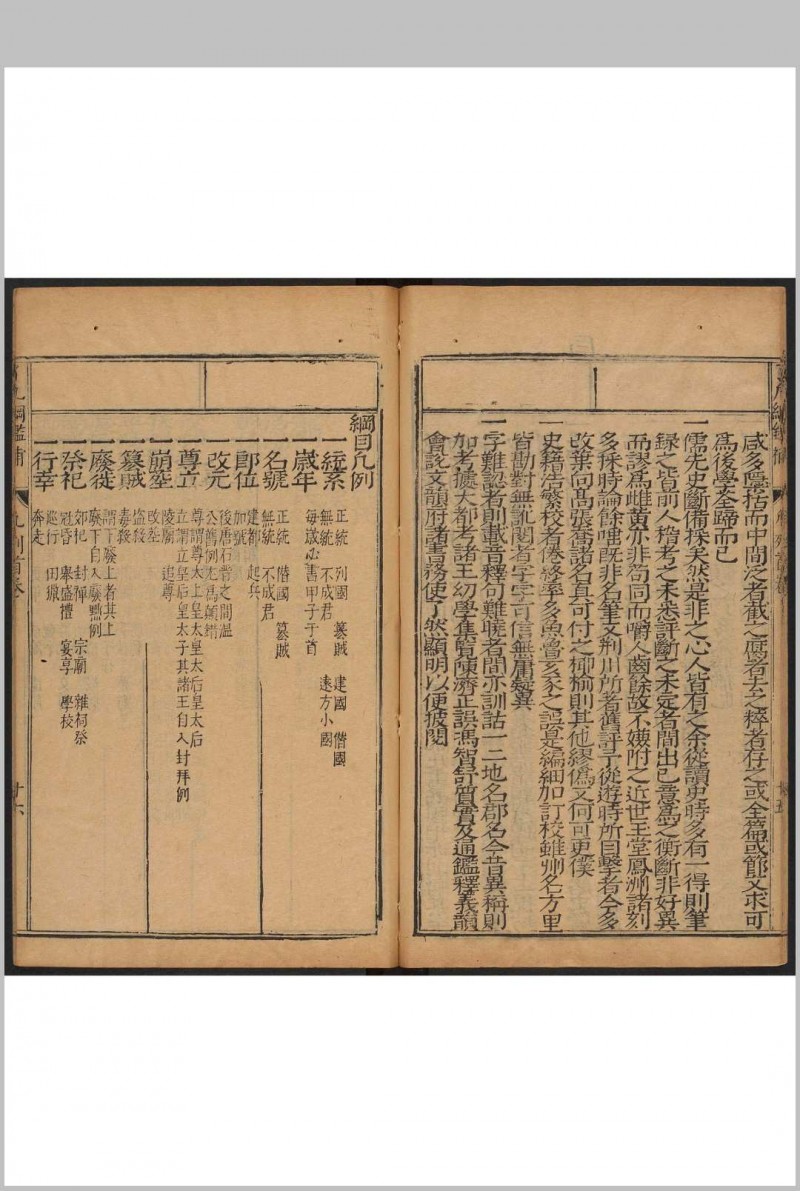 咸多隱括而中間泛者截之膺者去之粹者存之或全篇或節文求可
為後學筌蹄而已
一儒先史斷備採矣然是非之心人皆有之余從讀史時多有一得則筆
錄之皆前人稽考之未悉評斷之未定者間出己意為之衡斷非好異
而謬為雌黃亦非苟同而嚼人齒餘故不嫌附之近世王堂鳳洲諸刻
多採時論餘唾既非名筆又荆川所著舊評了從遊時所目擊者今多
改葉向高張鼐諸名真可付之柳榆則其他繆偽又何可更僕
一史籍浩繁校者倦終率多魚魯亥豕之誤是編細加訂校雖艸名方里
皆勘對無訛閱者字字可信無庸疑異
一字難認者則載音釋句難曉者間亦訓詁一二地名郡名今昔異稱則
加考據大都考諸王幼學集覽陳濟正誤馮智舒質實及通鑑釋義韻
會說文韻府諸書務使了然顯明以便披閱
綱目凡例
一統系
正統 列國 篡賊 建國 僭國
無統 不成君 遠方小國
一歲年
每歲必書甲子于首
一名號
正統 僭國 篡賊
無統 不成君
一即位
建都 起兵
加號
一改元
後唐石晉之間溫
公舊例尤為顛錯
一尊立
尊謂尊太上皇太皇太后皇太后
立謂立皇后皇太子其諸王自入封拜例
一崩葬
陵廟 追尊
改葬
一篡賊
盜殺
毒殺
一廢徙
謂下廢上者其上
廢下自入廢黜例
一祭祀
郊祀 封禪 宗廟 雜祠祭
冠昏 舉盛禮 宴享 學校
一行幸
巡行 田獵
奔走
凡例首卷
廿六